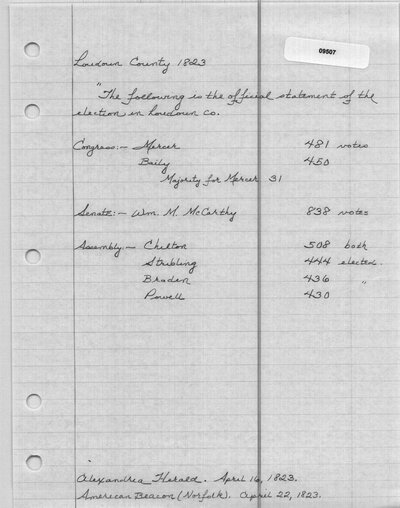 09507
Loudoun County 1823
"The following is the official statement of the
election in Loudoun Co.
Congress:— Mercer 481 votes
Baily 450
Majority for Mercer 31
Senate:— Wm. M. McCarthy 838 votes
Assembly:— Chilton 508 both
Stribling 444 elected.
Braden 436 "
Powell 430
Alexandria Herald. April 16, 1823.
American Beacon (Norfolk). April 22, 1823.